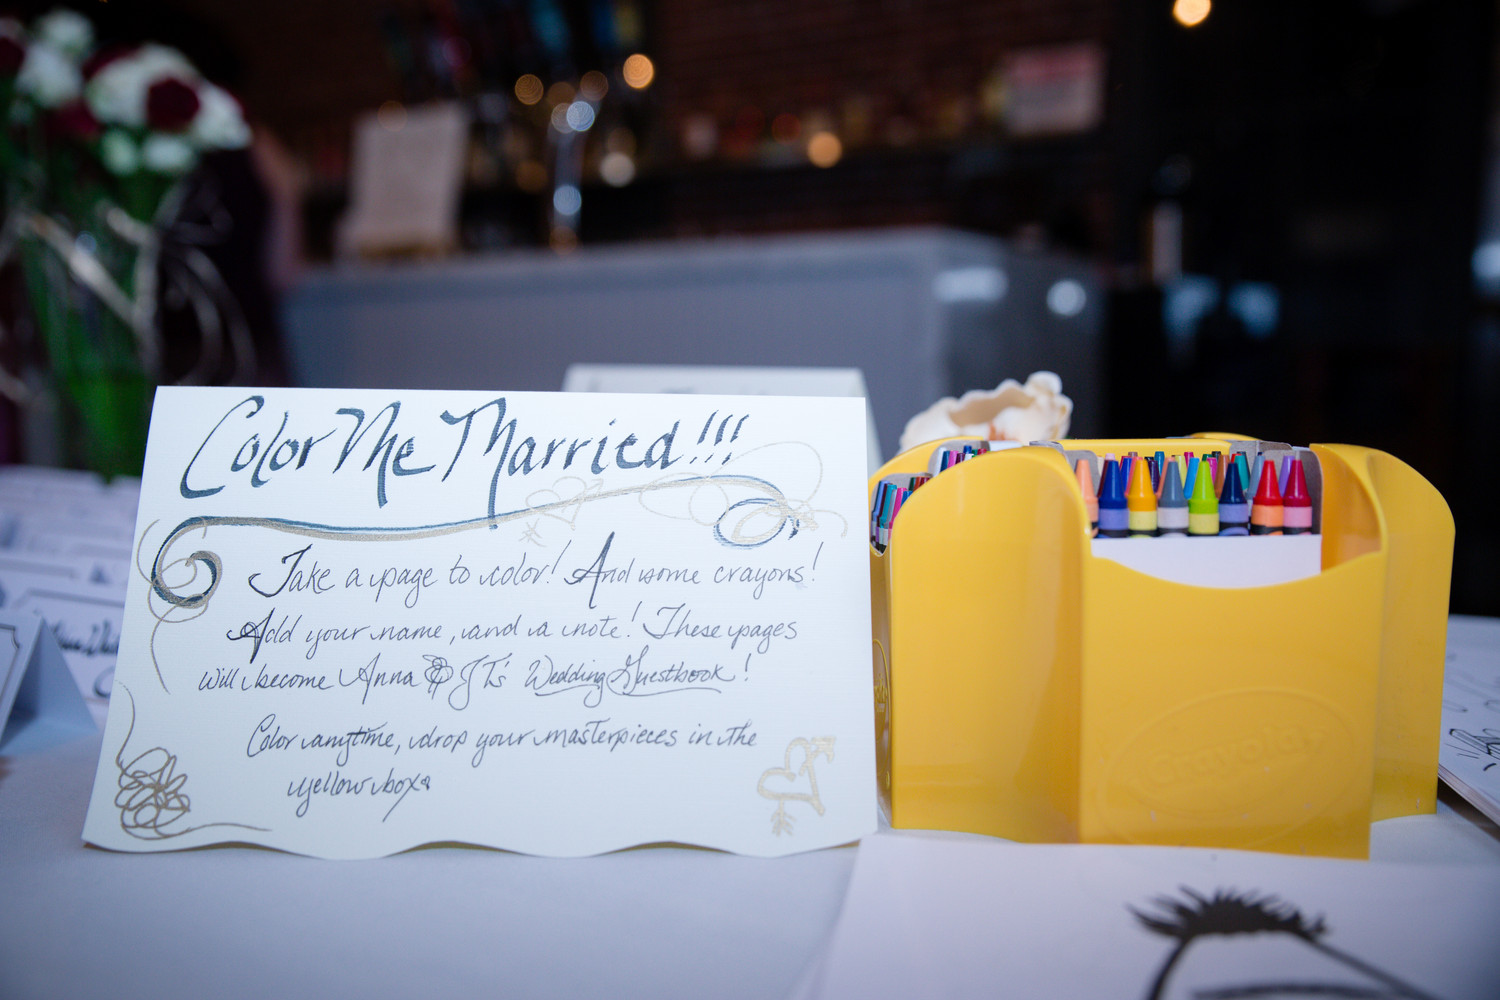 Color Me Married!!!
Take a page to color! And some crayons!
Add your name, and a note! These pages
will become Anna & JT's Wedding Guestbook!
Color anytime, drop your masterpieces in the
yellow box
Crayola